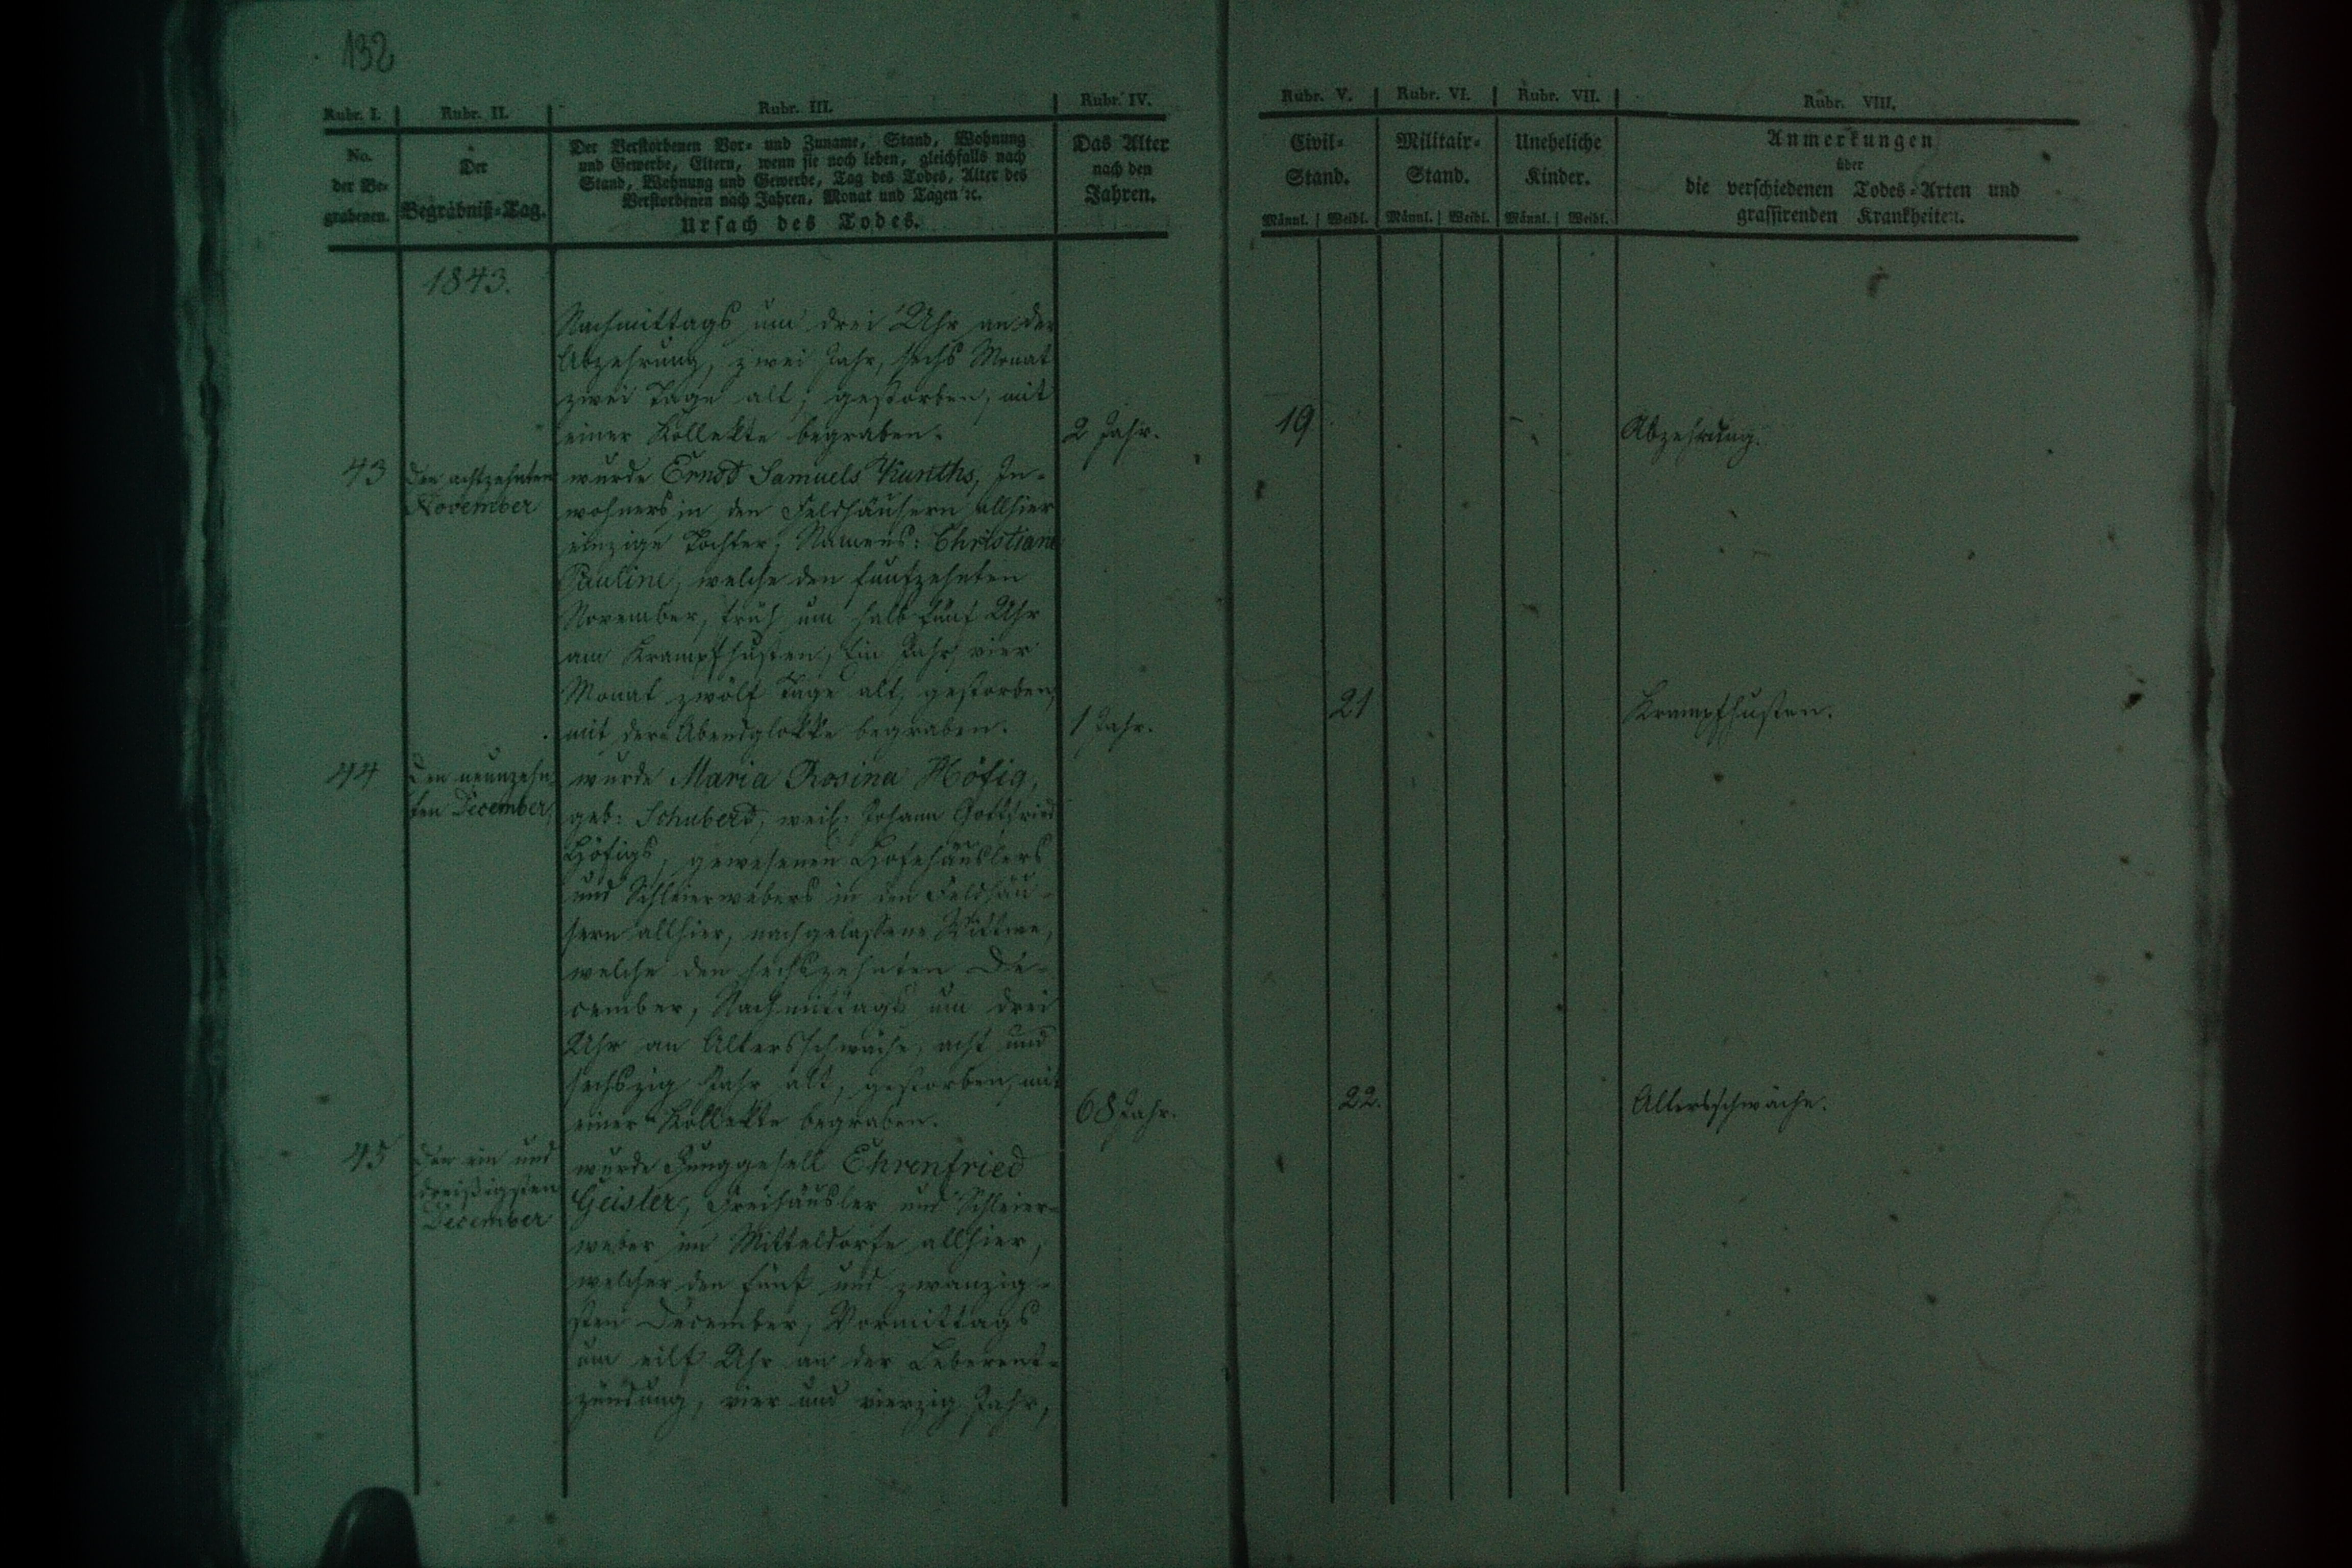 132
Rubr. I. Rubr. II. Rubr. III. Rubr. IV. Rubr. V. Rubr. VI. Rubr. VII. Rubr. VIII.
No.
der Be-
grabenen.
Der
Begräbniß-Tag.
Der Verstorbenen Vor- und Zuname, Stand, Wohnung
und Gewerbe, Eltern, wenn sie noch leben, gleichfalls nach
Stand, Wohnung und Gewerbe, Tag des Todes, Alter des
Verstorbenen nach Jahren, Monat und Tagen ꝛc.
Ursach des Todes.
Das Alter
nach den
Jahren.
Civil-
Stand.
Männl. Weibl.
Militair-
Stand.
Männl. Weibl.
Uneheliche
Kinder.
Männl. Weibl.
Anmerkungen
über
die verschiedenen Todes-Arten und
grassirenden Krankheiten.
1843.
Nachmittags um drei Uhr an der
Abzehrung, zwei Jahr, sechs Monat
zwei Tage alt, gestorben, mit
einer Kollekte begraben.
2 Jahr.
19
Abzehrung.
43
Den achtzehnten
November
wurde Ernst Samuels Kunths, In-
wohners in den Feldhäusern allhier
einzige Tochter, Namens: Christiane
Pauline, welche den funfzehnten
November, früh um halb fünf Uhr
am Krampfhusten, Ein Jahr, vier
Monat zwölf Tage alt, gestorben,
mit der Abendglokke begraben.
1 Jahr.
21
Krampfhusten.
44
Den neunzehn-
ten December,
wurde Maria Rosina Höfig,
geb: Schuberd, weil: Johann Gottfried
Höfigs, gewesenen Hofehäuslers
und Schleierwebers in den Feldhäu-
sern allhier, nachgelassene Wittwe,
welche den sechszehnten De-
cember, Nachmittags um drei
Uhr an Altersschwäche, acht und
sechszig Jahr alt, gestorben, mit
einer Kollekte begraben.
68 Jahr.
22.
Altersschwäche.
45
Den ein und
dreißigsten
December
wurde Junggesell Ehrenfried
Geisler, Freihäusler und Schleier-
weber im Mitteldorfe allhier,
welcher den fünf und zwanzig-
sten December, Vormittags
um eilf Uhr an der Leberent-
zündung, vier und vierzig Jahr,